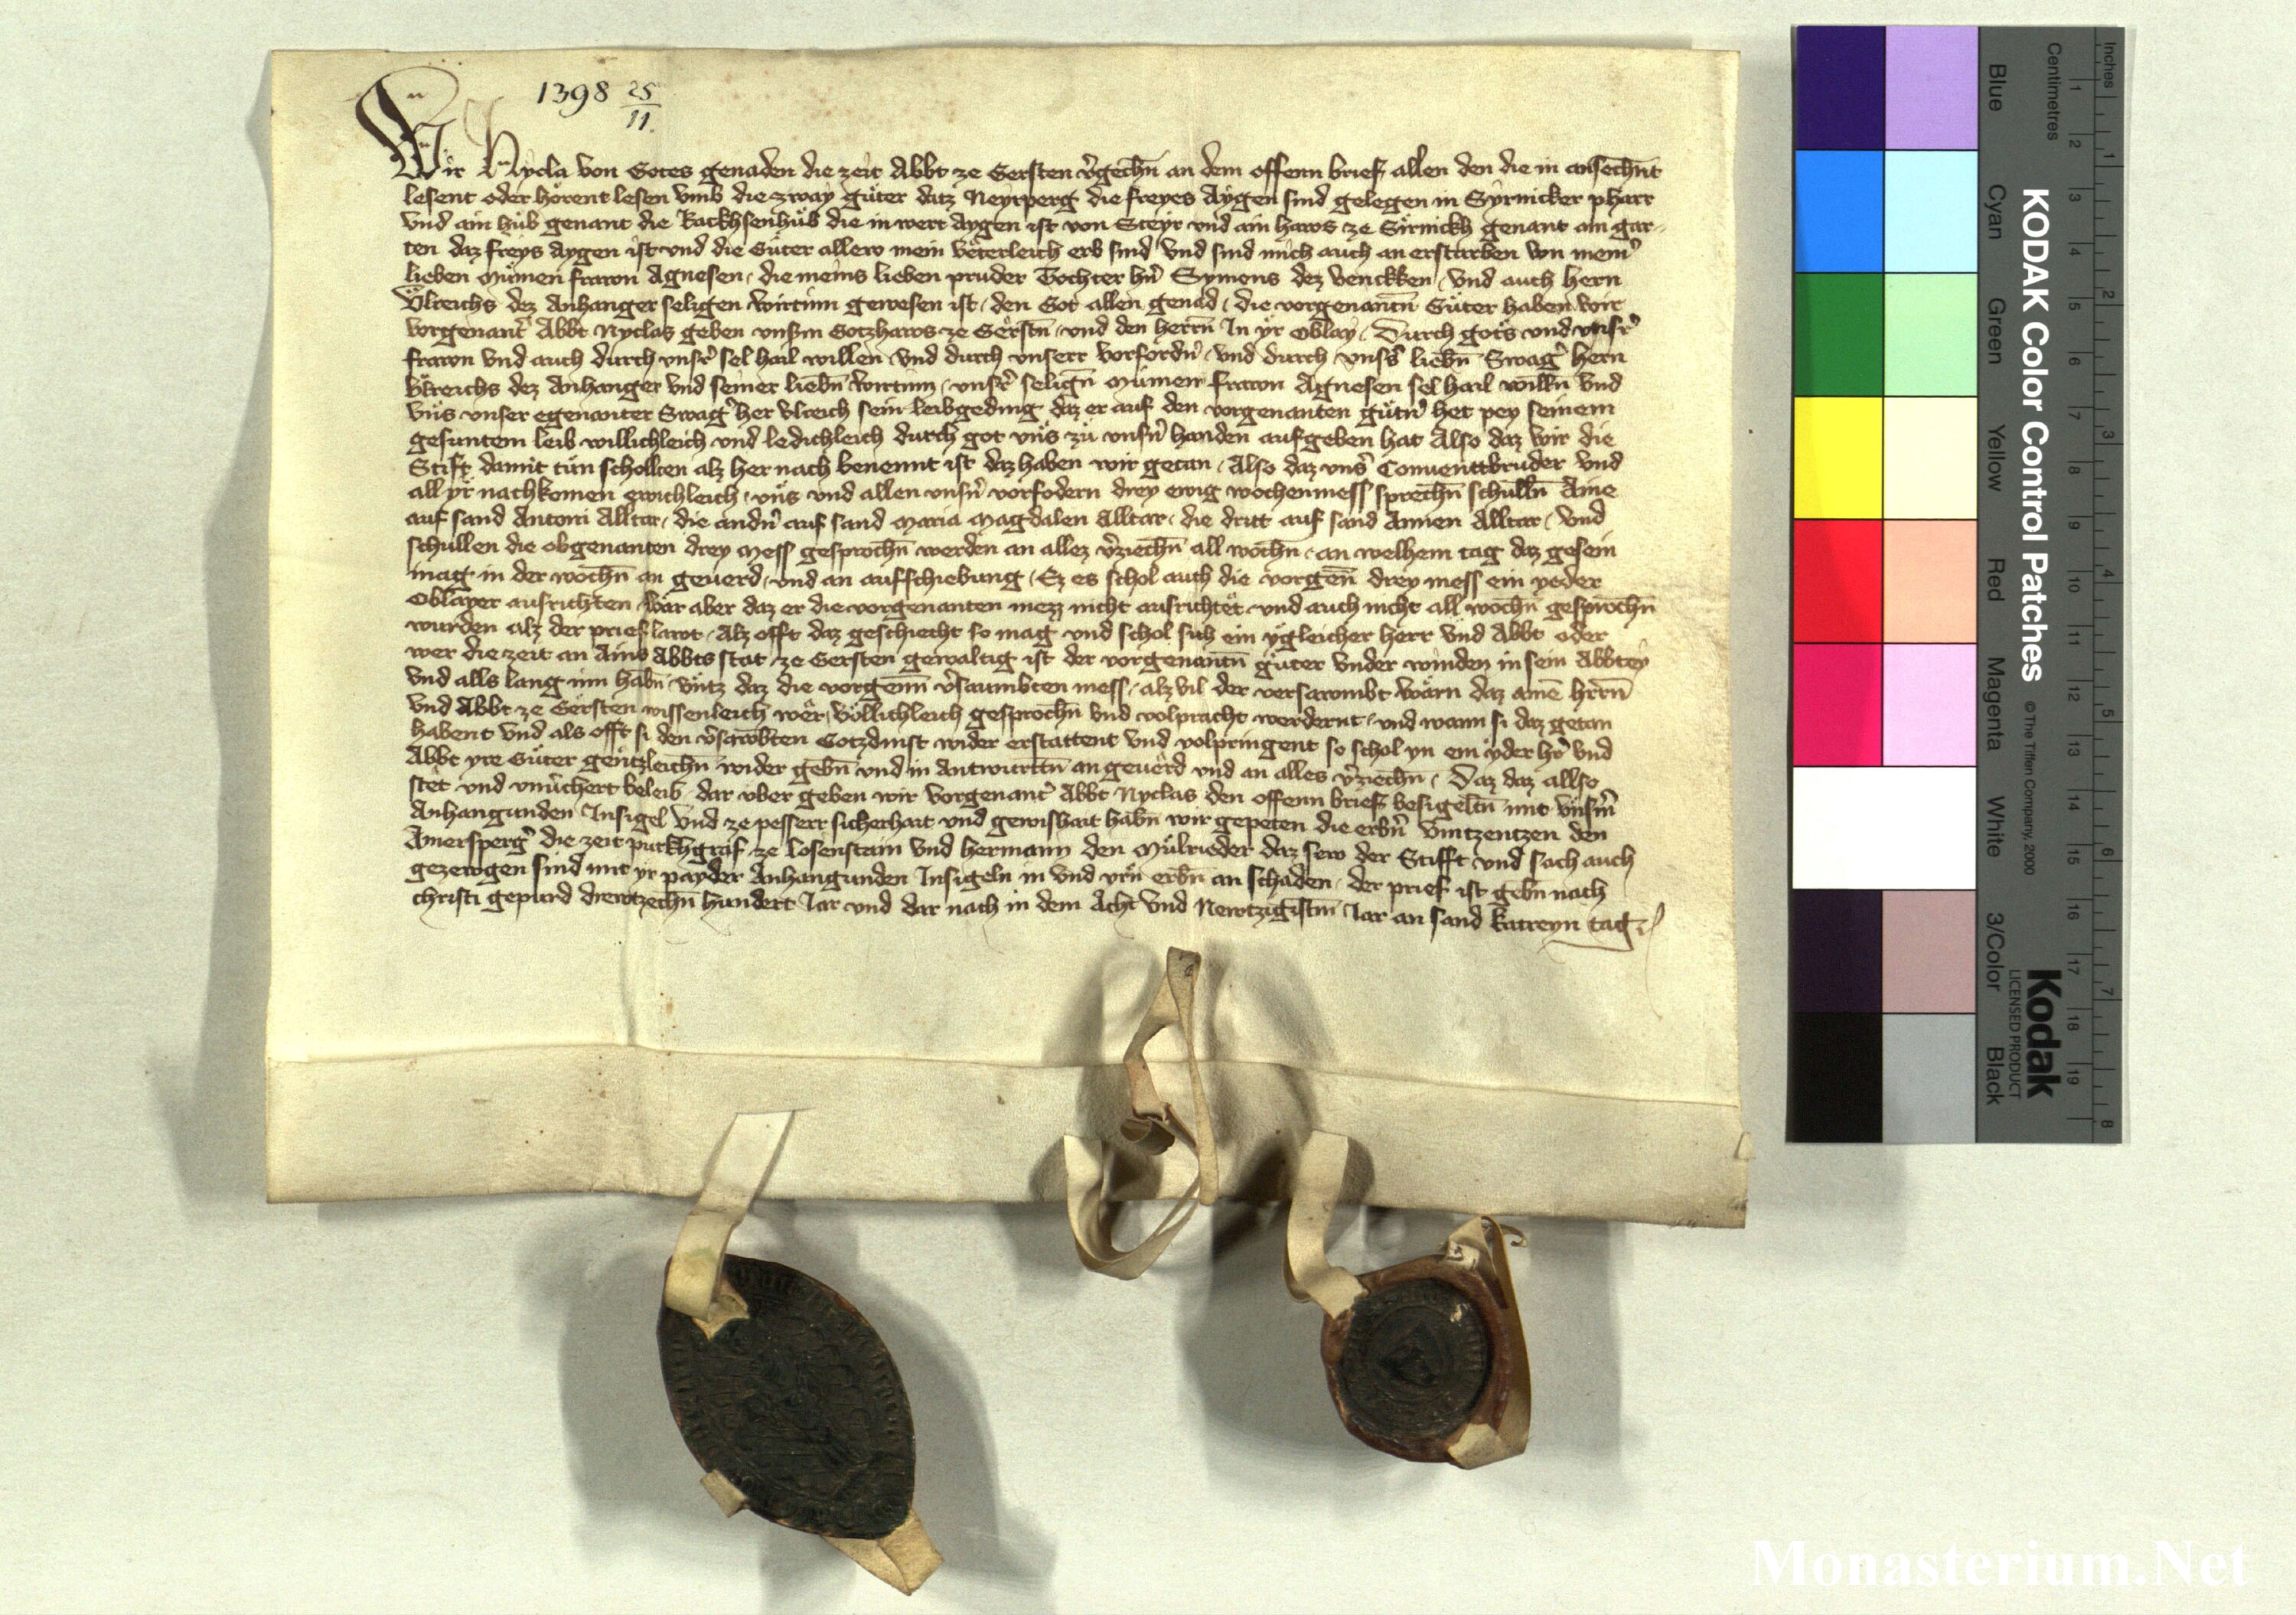 1398 25/11.
Wir Nycla von Gotes genaden die zeit Abbt ze Gersten v̉gechn̄ an dem offenn brief allen den die in ansechn̄t
lesent oder hörent lesen vmb die zway gúter datz Neyrperg die freyes Aygen sind gelegen in Syrnicker pharr
vnd ain hůb genant die Rackhsenhůb die in wert Aygen ist von Steyr vnd ain haws ze Sirnickh genant am gar-
ten daz freys Aygen ist vnd die Gúter allew mein veterleich erb sind vnd sind mich auch an erstarben von mem̉
lieben Můmen frawn Agnesen, die meins lieben pruder Tochter hn̉ Symons dez venckken, vnd auch hern
Vlreichs dez Anhanger seligen wirtinn gewesen ist, den Got allen genad, die vorgenantn̄ Gúter haben wir
vorgenant̉ Abbt Nyclas geben vnsm̉ Gotzhaws ze Gerstn̄ vnd den herrn̄ In yr Oblay, Durch gots vnd vnsr̉
frawn vnd auch durch vnsr̉ sel hail willen vnd durch vnserr vorfordn̉ vnd durch vnss̉ liebn̄ Swag̉ hern
Vlreichs dez Anhanger vnd seiner liebn̄ wirtinn, vnsr̉ selign̄ Můmen frawn Agnesen sel hail willn̄ vnd
vns vnser egenanter Swag̉ her Vlreich sein leibgeding daz er auf den vorgenanten gutn̉ het pey seinem
gesuntem leib willichleich vnd ledichleich durch got vns zu vnsn̉ handen aufgeben hat Also daz wir die
Stift damit tůn schollten alz hernach benennt ist daz haben wir getan, Also daz vns̉ Conuenttbruder vnd
all yr nachkomen ewichleich, vns vnd allen vnsn̉ vorfodern drey ewig wochenmess sprechn̄ schulln̄ Aine
auf sand Antoni Alltar, die andn̉ auf sand Maria Magdalen Alltar, die dritt auf sand Annen Alltar, vnd
schullen die obgenanten drey Mess gesprochn̄ werden an allez v̉ziechn̄ all wochn̄, an welhem tag daz gesein
mag in der wochn̄ an geuerd, vnd an aufschiebung, Ez es schol auch die vorgen̄ drey mess ein yeder
Oblayer ausrichten, wär aber daz er die vorgenanten mezz nicht ausrichtet vnd auch nicht all wochn̄ gesprochn̄
wurden alz der prief lawt, Alz offt daz geschiecht so mag vnd schol sich ein ygleicher herr vnd Abbt oder
wer die zeit an Ains Abbts stat ze Gersten gewaltig ist der vorgenantn̄ gúter vnder winden in sein Abbtey
vnd alls lang inn habn̄ vntz daz die vorgenn̄ v̉saumbten mess, alz vil der versawmbt wärn daz ainē hrrn̄
vnd Abbt ze Gersten wissenleich wer, völlichleich gesprochn̄ vnd volpracht werdernt, vnd wann si daz getan
habent vnd als offt si den v̉sawbten Gotzdinst wider erstattent vnd volpringent so schol yn ein yder hr̉ vnd
Abbt yre Gúter gentzleichn̄ wider gebn̄ vnd in Antwurttn̄ an geuerd vnd an alles v̉ziechn̄, Daz daz allso
stet vnd vnuchert beleib, dar vber geben wir vorgenant̉ Abbt Nyclas den offenn brief besigeltn̄ mit vnsm̉
Anhangunden Insigel vnd ze pesserr sicherhait vnd gewishait habn̄ wir gepeten die erbn̉ Vintzentzen den
Amersperg̉ die zeit purkhgraf ze Losenstain vnd hermann den Mulrieder daz sew der Stifft vnd sach auch
gezewgen sind mit yr payder Anhangunden Insigeln in vnd yrn erbn̄ an schaden, der prief ist gebn̄ nach
christi gepurd drewtzechn̄ hundert Jar vnd dar nach in dem Acht vnd Newtzigistm̄ Jar an sand katreyn tag
Inches
Centimetres
KODAK Color Control Patches
© The Tiffen Company, 2000
Kodak
LICENSED PRODUCT
Blue
Cyan
Green
Yellow
Red
Magenta
White
3/Color
Black
1 2 3 4 5 6 7 8 9 10 11 12 13 14 15 16 17 18 19
1 2 3 4 5 6 7 8
Monasterium.Net